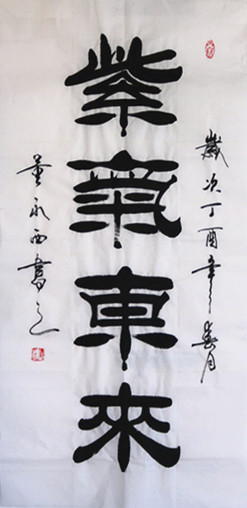 歲次丁酉年春月
紫氣東來
董永西書之